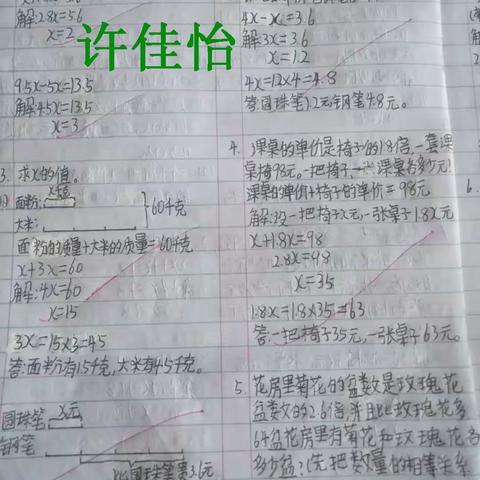 许佳怡
解:2.8x=5.6
x=2
9.5x-5x=13.5
解:4.5x=13.5
x=3
3. 求x的值。
面粉: x千克
大米:
60千克
面粉的质量+大米的质量=60千克
x+3x=60
解:4x=60
x=15
3x=15×3=45
答:面粉有15千克,大米有45千克。
圆珠笔 x元
钢笔
比圆珠笔贵3.6元
4x-x=3.6
解3x=3.6
x=1.2
4x=1.2×4=4.8
答:圆珠笔1.2元钢笔4.8元。
4. 课桌的单价是椅子的1.8倍,一套课
桌椅98元。一把椅子,一 课桌各多少元?
课桌的单价+椅子的单价=98元
解:设一把椅子x元,一张桌子1.8x元
x+1.8x=98
2.8x=98
x=35
1.8x=1.8×35=63
答:一把椅子35元,一张桌子63元。
5. 花房里菊花的盆数是玫瑰花
盆数的2.6倍,并且比玫瑰花多
64盆花房里有菊花和玫瑰花各
多少盆?(先把数量的相等关系
6.